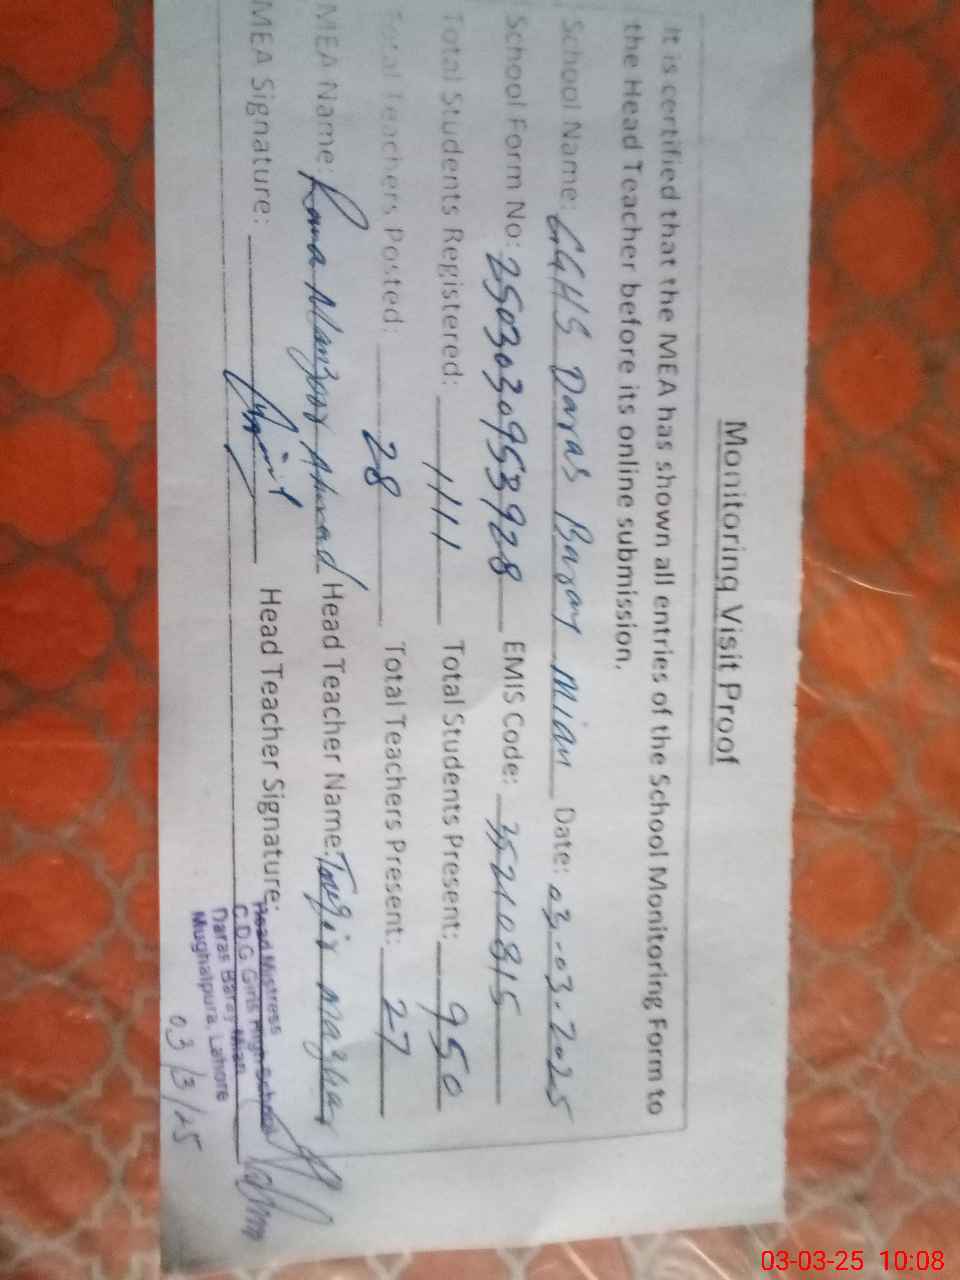 Monitoring Visit Proof
It is certified that the MEA has shown all entries of the School Monitoring Form to
the Head Teacher before its online submission.
School Name: GGHS Daras Baray Mian Date: 03.03.2025
School Form No: 2503030953928 EMIS Code: 35210815
Total Students Registered: 1111 Total Students Present: 950
Total Teachers Posted: 28 Total Teachers Present: 27
MEA Name: Rana Manzoor Ahmad Head Teacher Name: Mazhar
MEA Signature: Head Teacher Signature:
Head Mistress
C.D.G Girls High School
Daras Baray Mian
Mughalpura, Lahore
03/3/25
03-03-25 10:08